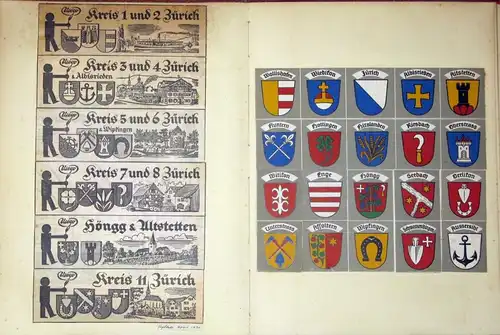 Kreis 1 und 2 Zürich
Kreis 3 und 4 Zürich
& Albisrieden
Kreis 5 und 6 Zürich
& Wipkingen
Kreis 7 und 8 Zürich
Höngg & Altstetten
Kreis 11 Zürich
Wollishofen Wiedikon Zürich Albisrieden Altstetten
Fluntern Hottingen Hirslanden Riesbach Oberstrass
Witikon Enge Höngg Seebach Oerlikon
Unterstrass Affoltern Wipkingen Schwamendingen Aussersihl